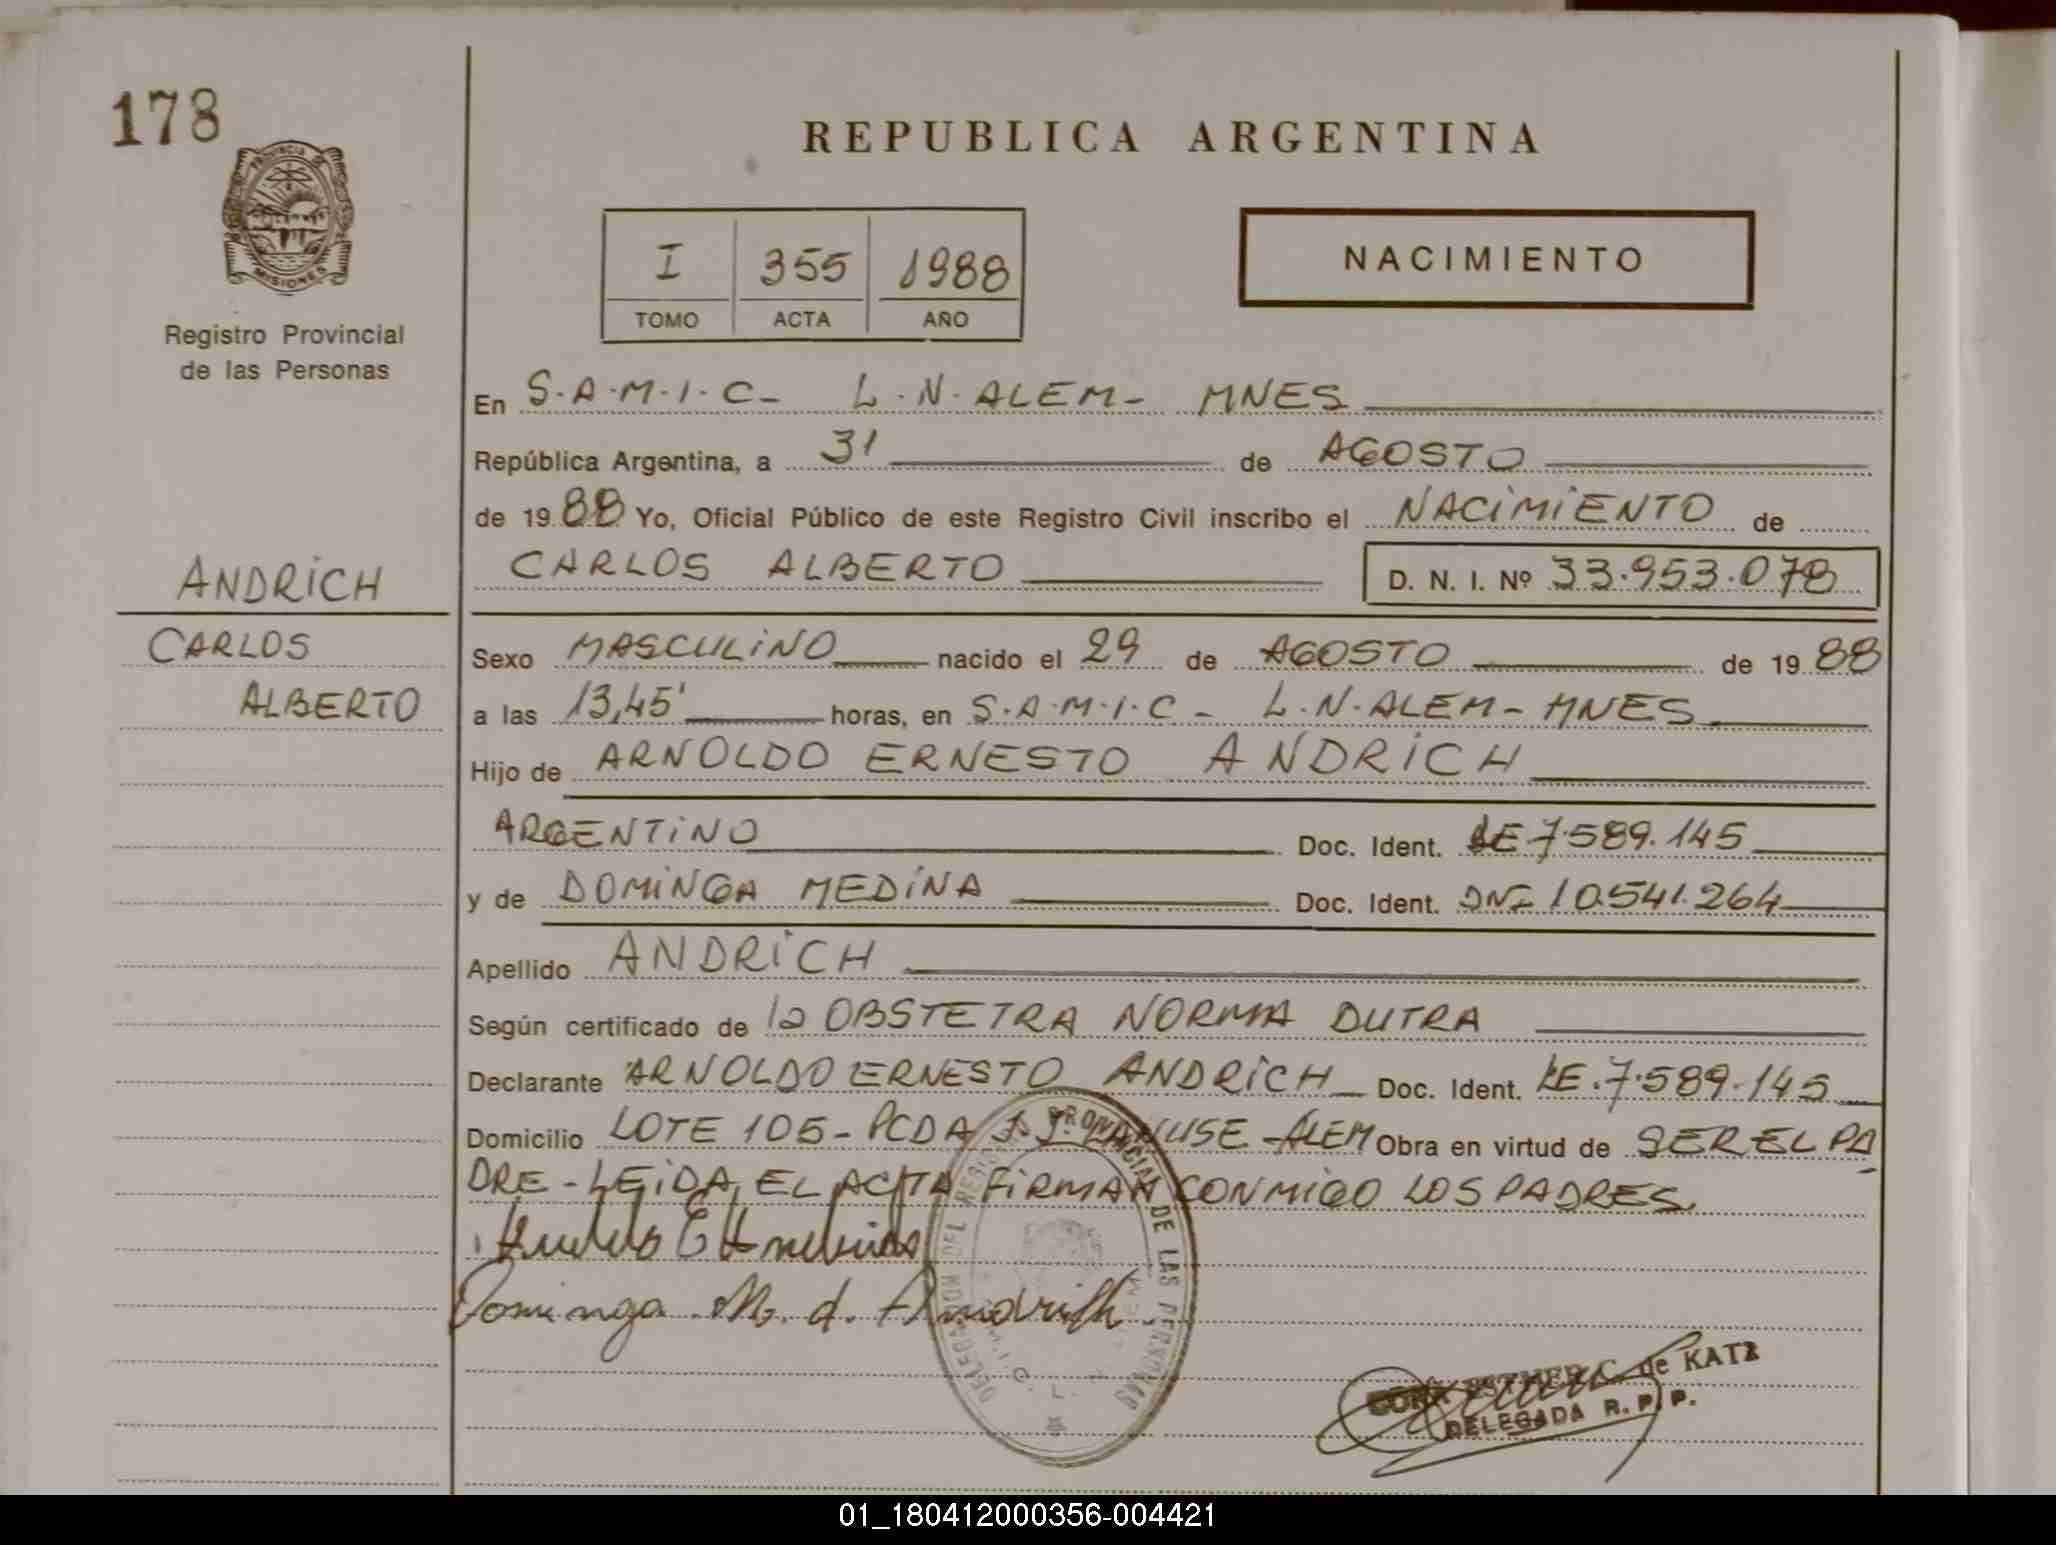 178
REPUBLICA ARGENTINA
PROVINCIA DE
MISIONES
Registro Provincial
de las Personas
I 355 1988
TOMO ACTA AÑO
NACIMIENTO
En S.A.M.I.C- L.N.ALEM- MNES
República Argentina, a 31 de AGOSTO
de 1988 Yo, Oficial Público de este Registro Civil inscribo el NACIMIENTO de
CARLOS ALBERTO D. N. I. Nº 33.953.078
ANDRICH
CARLOS
ALBERTO
Sexo MASCULINO nacido el 29 de AGOSTO de 1988
a las 13,45' horas, en S.A.M.I.C- L.N.ALEM- MNES
Hijo de ARNOLDO ERNESTO ANDRICH
ARGENTINO Doc. Ident. LE.7.589.145
y de DOMINGA MEDINA Doc. Ident. DNI 10.541.264
Apellido ANDRICH
Según certificado de la OBSTETRA NORMA DUTRA
Declarante ARNOLDO ERNESTO ANDRICH Doc. Ident. LE.7.589.145
Domicilio LOTE 105- PCDA J.J. LANUSE -ALEM Obra en virtud de SER EL PA
DRE - LEIDA EL ACTA FIRMAN CONMIGO LOS PADRES.
Dominga M. d. Andrich
DELEGACION DEL REGISTRO PROVINCIAL DE LAS PERSONAS
ESTHER C. de KATZ
DELEGADA R. P. P.
01_180412000356-004421